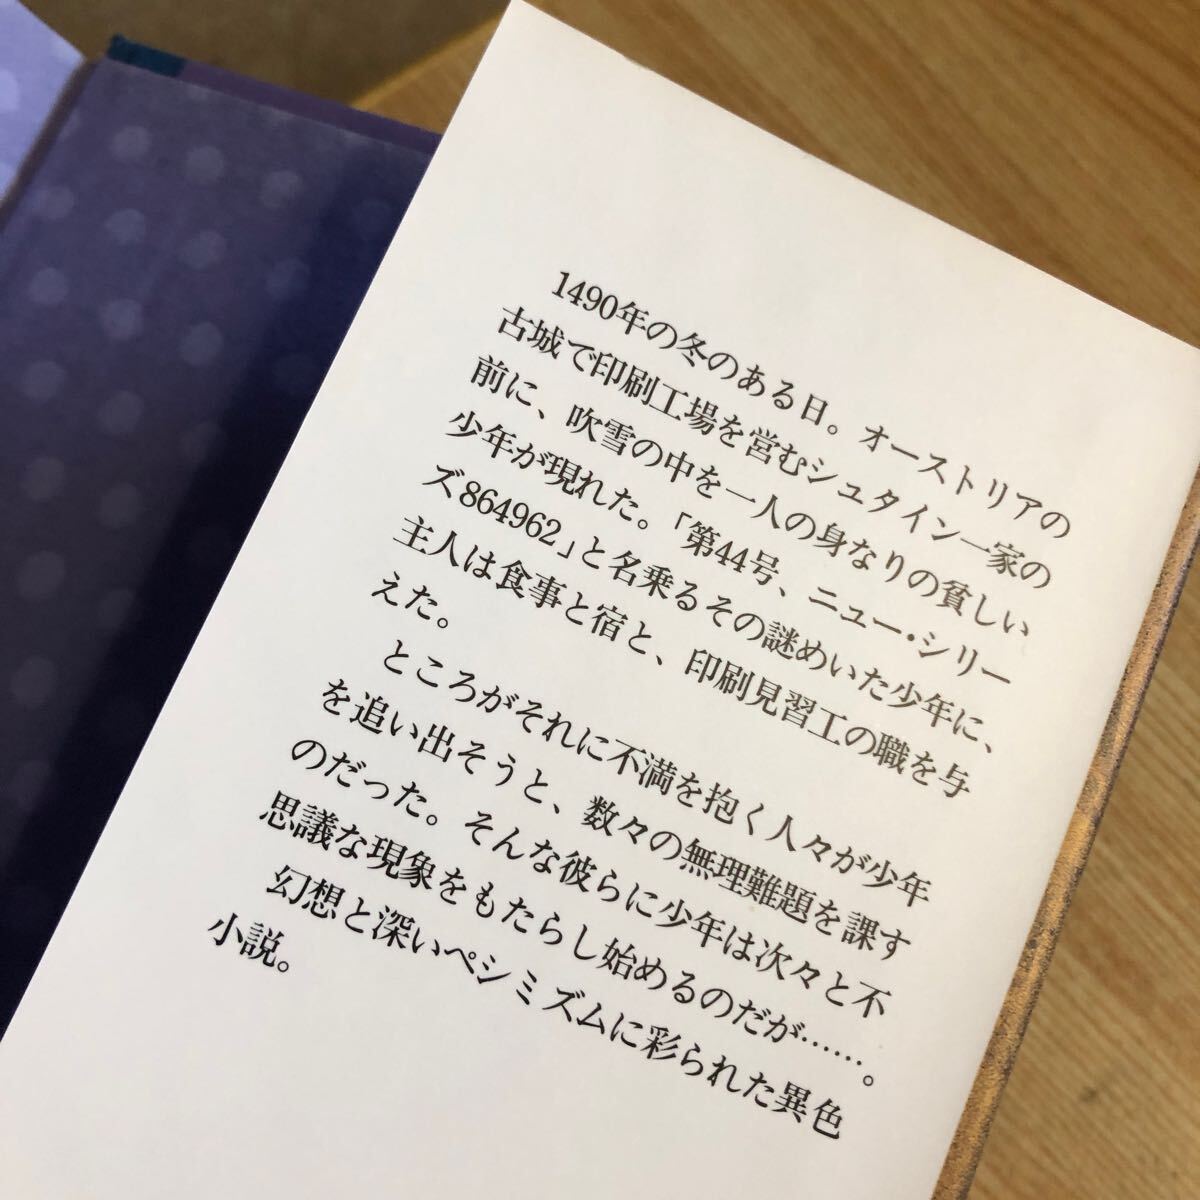 1490年の冬のある日。オーストリアの
古城で印刷工場を営むシュタイン一家の
前に、吹雪の中を一人の身なりの貧しい
少年が現れた。「第44号、ニュー・シリー
ズ864962」と名乗るその謎めいた少年に、
主人は食事と宿と、印刷見習工の職を与
えた。
ところがそれに不満を抱く人々が少年
を追い出そうと、数々の無理難題を課す
のだった。そんな彼らに少年は次々と不
思議な現象をもたらし始めるのだが……。
幻想と深いペシミズムに彩られた異色
小説。